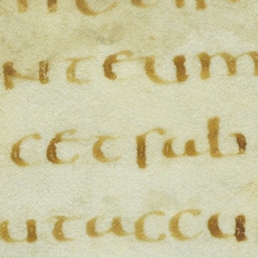 nteum
cetsub
utuccu